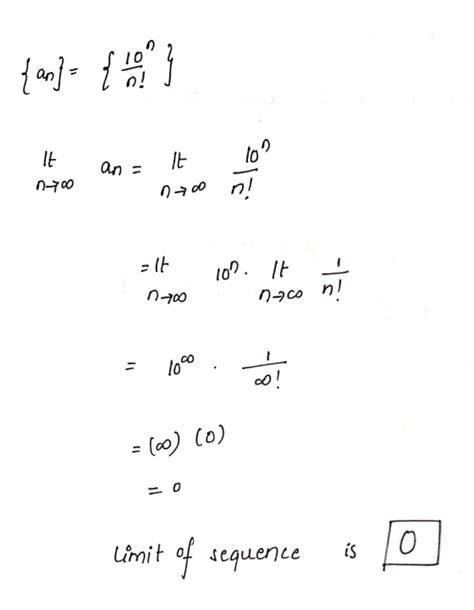 {an} = {10^n / n!}
lt n→∞ an = lt n→∞ 10^n / n!
= lt n→∞ 10^n · lt n→∞ 1 / n!
= 10^∞ · 1 / ∞!
= (∞) (0)
= 0
Limit of sequence is 0